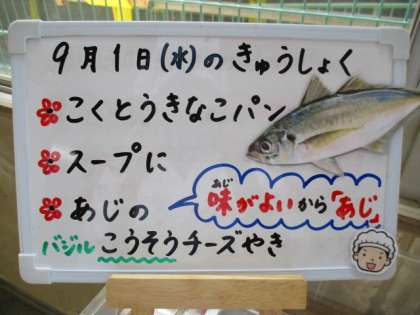 9月1日(水)のきゅうしょく
こくとうきなこパン
スープに
あじの
あじ
味がよいから「あじ」
バジルこうそうチーズやき